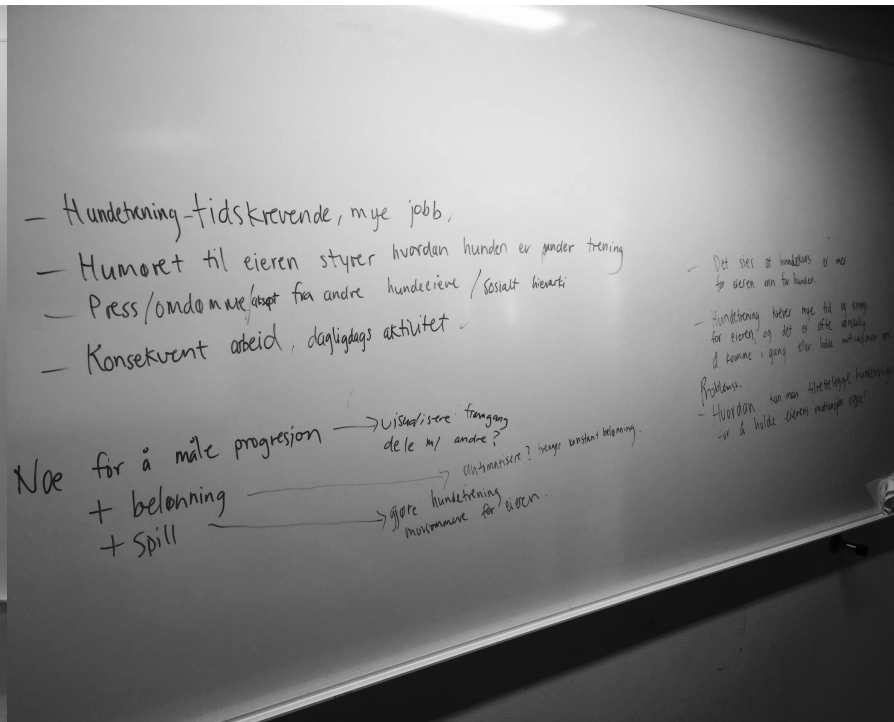 - Hundetrening - tidskrevende, mye jobb,
- Humøret til eieren styrer hvordan hunden er under trening
- Press/omdømme/ fra andre hundeeiere / sosialt hierarki
- Konsekvent arbeid, dagligdags aktivitet
Noe for å måle progresjon → visualisere framgang
dele m/ andre?
+ belønning → automatisere? trenger konstant belønning.
+ spill → gjøre hundetrening
morsommere for eieren.
- Det sies at hundekurs er mer
for eieren enn for hunden.
- Hundetrening krever mye tid og energi
for eieren, og det er ofte vanskelig
å komme i gang eller holde motivasjonen
Problemst.
- Hvordan kan man tilrettelegge
for å holde eierens motivasjon oppe?